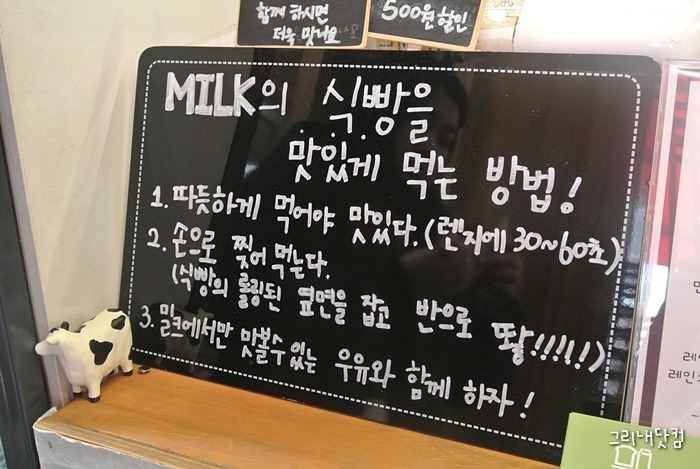 함께 하시면
더욱 맛나요
500원 할인
MILK의 식빵을
맛있게 먹는 방법!
1. 따뜻하게 먹어야 맛있다. (렌지에 30~60초)
2. 손으로 찢어 먹는다.
(식빵의 롤링된 옆면을 잡고 반으로 땋!!!!!)
3. 밀크에서만 맛볼수 있는 우유와 함께 하자!
레인
그리내닷컴